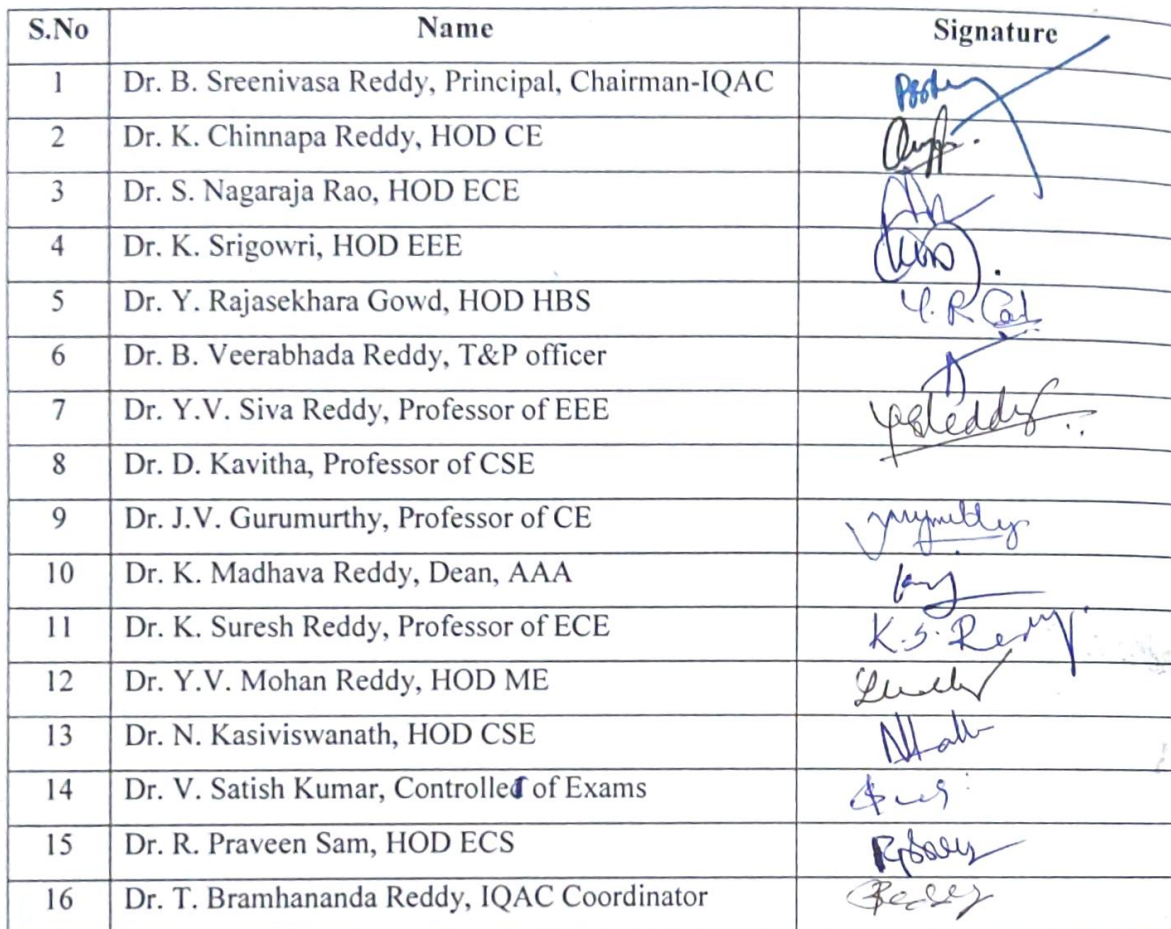 S.No Name Signature
1 Dr. B. Sreenivasa Reddy, Principal, Chairman-IQAC
2 Dr. K. Chinnapa Reddy, HOD CE
3 Dr. S. Nagaraja Rao, HOD ECE
4 Dr. K. Srigowri, HOD EEE
5 Dr. Y. Rajasekhara Gowd, HOD HBS Y. R
6 Dr. B. Veerabhada Reddy, T&P officer
7 Dr. Y.V. Siva Reddy, Professor of EEE
8 Dr. D. Kavitha, Professor of CSE
9 Dr. J.V. Gurumurthy, Professor of CE
10 Dr. K. Madhava Reddy, Dean, AAA
11 Dr. K. Suresh Reddy, Professor of ECE K.S. Reddy
12 Dr. Y.V. Mohan Reddy, HOD ME
13 Dr. N. Kasiviswanath, HOD CSE
14 Dr. V. Satish Kumar, Controller of Exams
15 Dr. R. Praveen Sam, HOD ECS
16 Dr. T. Bramhananda Reddy, IQAC Coordinator Reddy